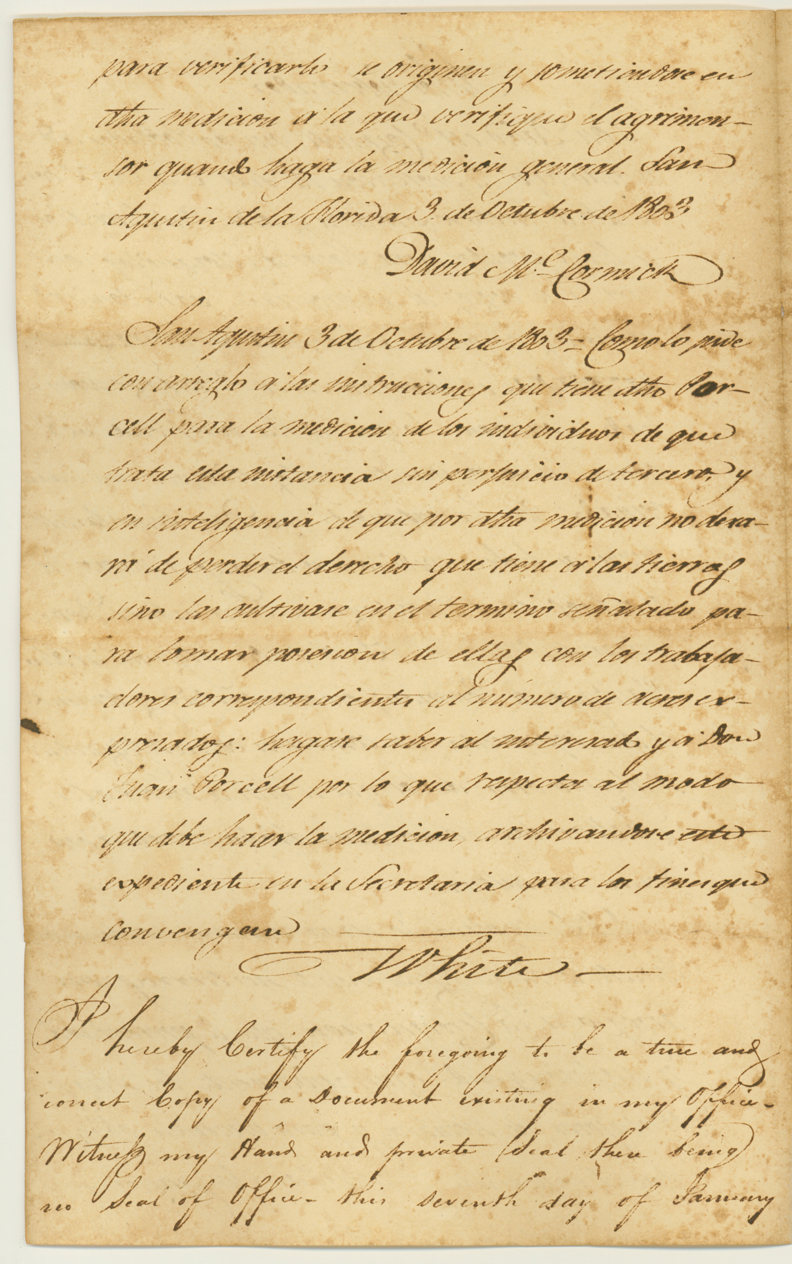 para verificarlo se originen y sometiendose en
dha medicion á la que verifique el agrimen-
sor quando haga la medición general. San
Agustin de la Florida 3. de Octubre de 1803
David Mc. Cormick
San Agustin 3 de Octubre de 1803 = Como lo pide
con arreglo á las instrucciones que tiene dho Por-
cell para la medicion de los individuos de que
trata esta instancia sin perjuicio de tercero, y
en inteligencia de que por dha medicion no dexa-
rá de perder el derecho que tiene á las tierras
sino las cultivase en el termino señalado pa-
ra tomar posesion de ellas con los trabaja-
dores correspondientes al número de acres ex-
presados: hagase saber al interesado y á Don
Juan Porcell por lo que respecta al modo
que debe hacer la medicion, archivandose este
expediente en la Secretaria para los fines que
convengan
White
I hereby Certify the foregoing to be a true and
correct Copy of a Document existing in my Office-
Witness my Hand and private Seal there being
no Seal of Office- this seventh day of January